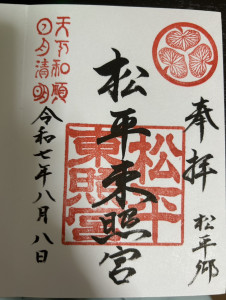 奉拝
松平郷
松平東照宮
松平
東照宮
天下和順
日月清明
令和七年八月八日